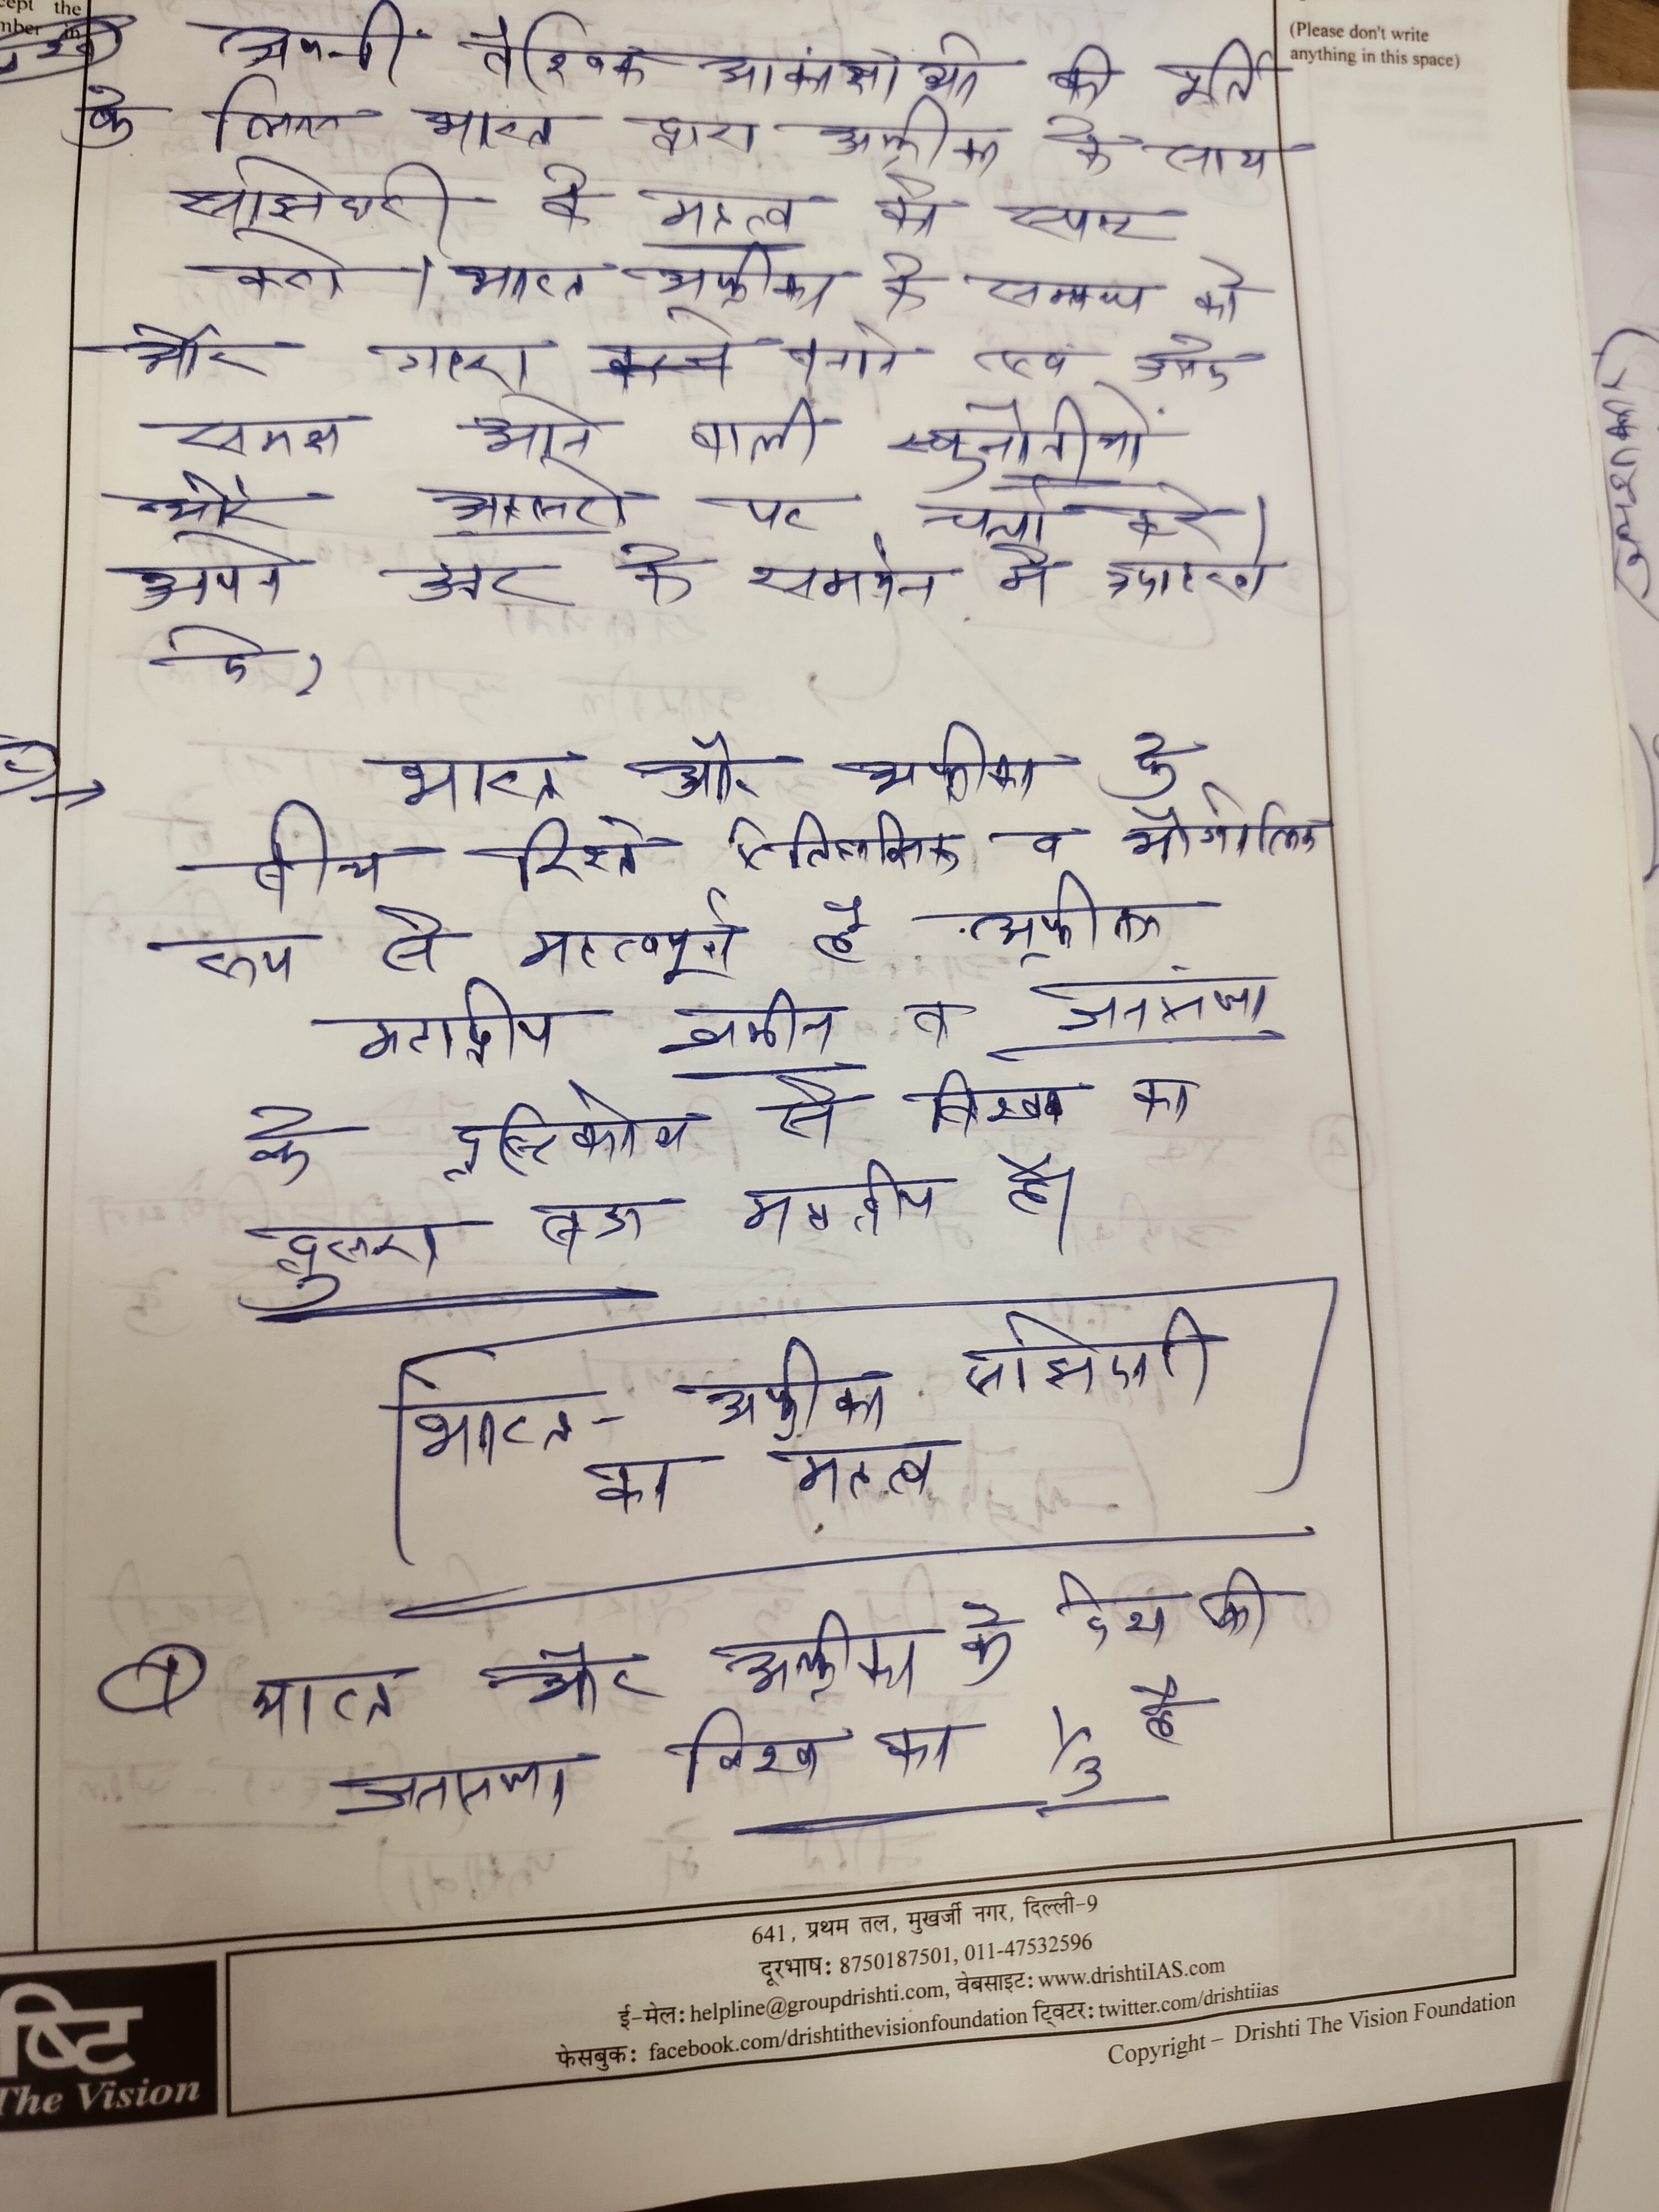 cept the
mber in
(Please don't write
anything in this space)
अपनी वैश्विक आकांक्षाओं की पूर्ति
के लिए भारत द्वारा अफ्रीका के साथ
साझेदारी के महत्व को स्पष्ट
करो। भारत अफ्रीका के सम्बन्ध को
और गहरा करने बनाने एवं उनके
समक्ष आने वाली चुनौतीयों
और अवसरों पर चर्चा करें।
अपने उत्तर के समर्थन में उदाहरण
दें।
→ भारत और अफ्रीका के
बीच रिश्ते ऐतिहासिक व भौगोलिक
रूप से महत्वपूर्ण है अफ्रीका
महाद्वीप जमीन व जनसंख्या
के दृष्टिकोण से विश्व का
दुसरा बड़ा महाद्वीप है।
भारत- अफ्रीका साझेदारी
का महत्व
① भारत और अफ्रीका के देश की
जनसंख्या विश्व का 1/3 है
641, प्रथम तल, मुखर्जी नगर, दिल्ली-9
दूरभाष: 8750187501, 011-47532596
ई-मेल: helpline@groupdrishti.com, वेबसाइट: www.drishtiIAS.com
फेसबुक: facebook.com/drishtithevisionfoundation ट्विटर: twitter.com/drishtiias
Copyright – Drishti The Vision Foundation
ष्टि
The Vision